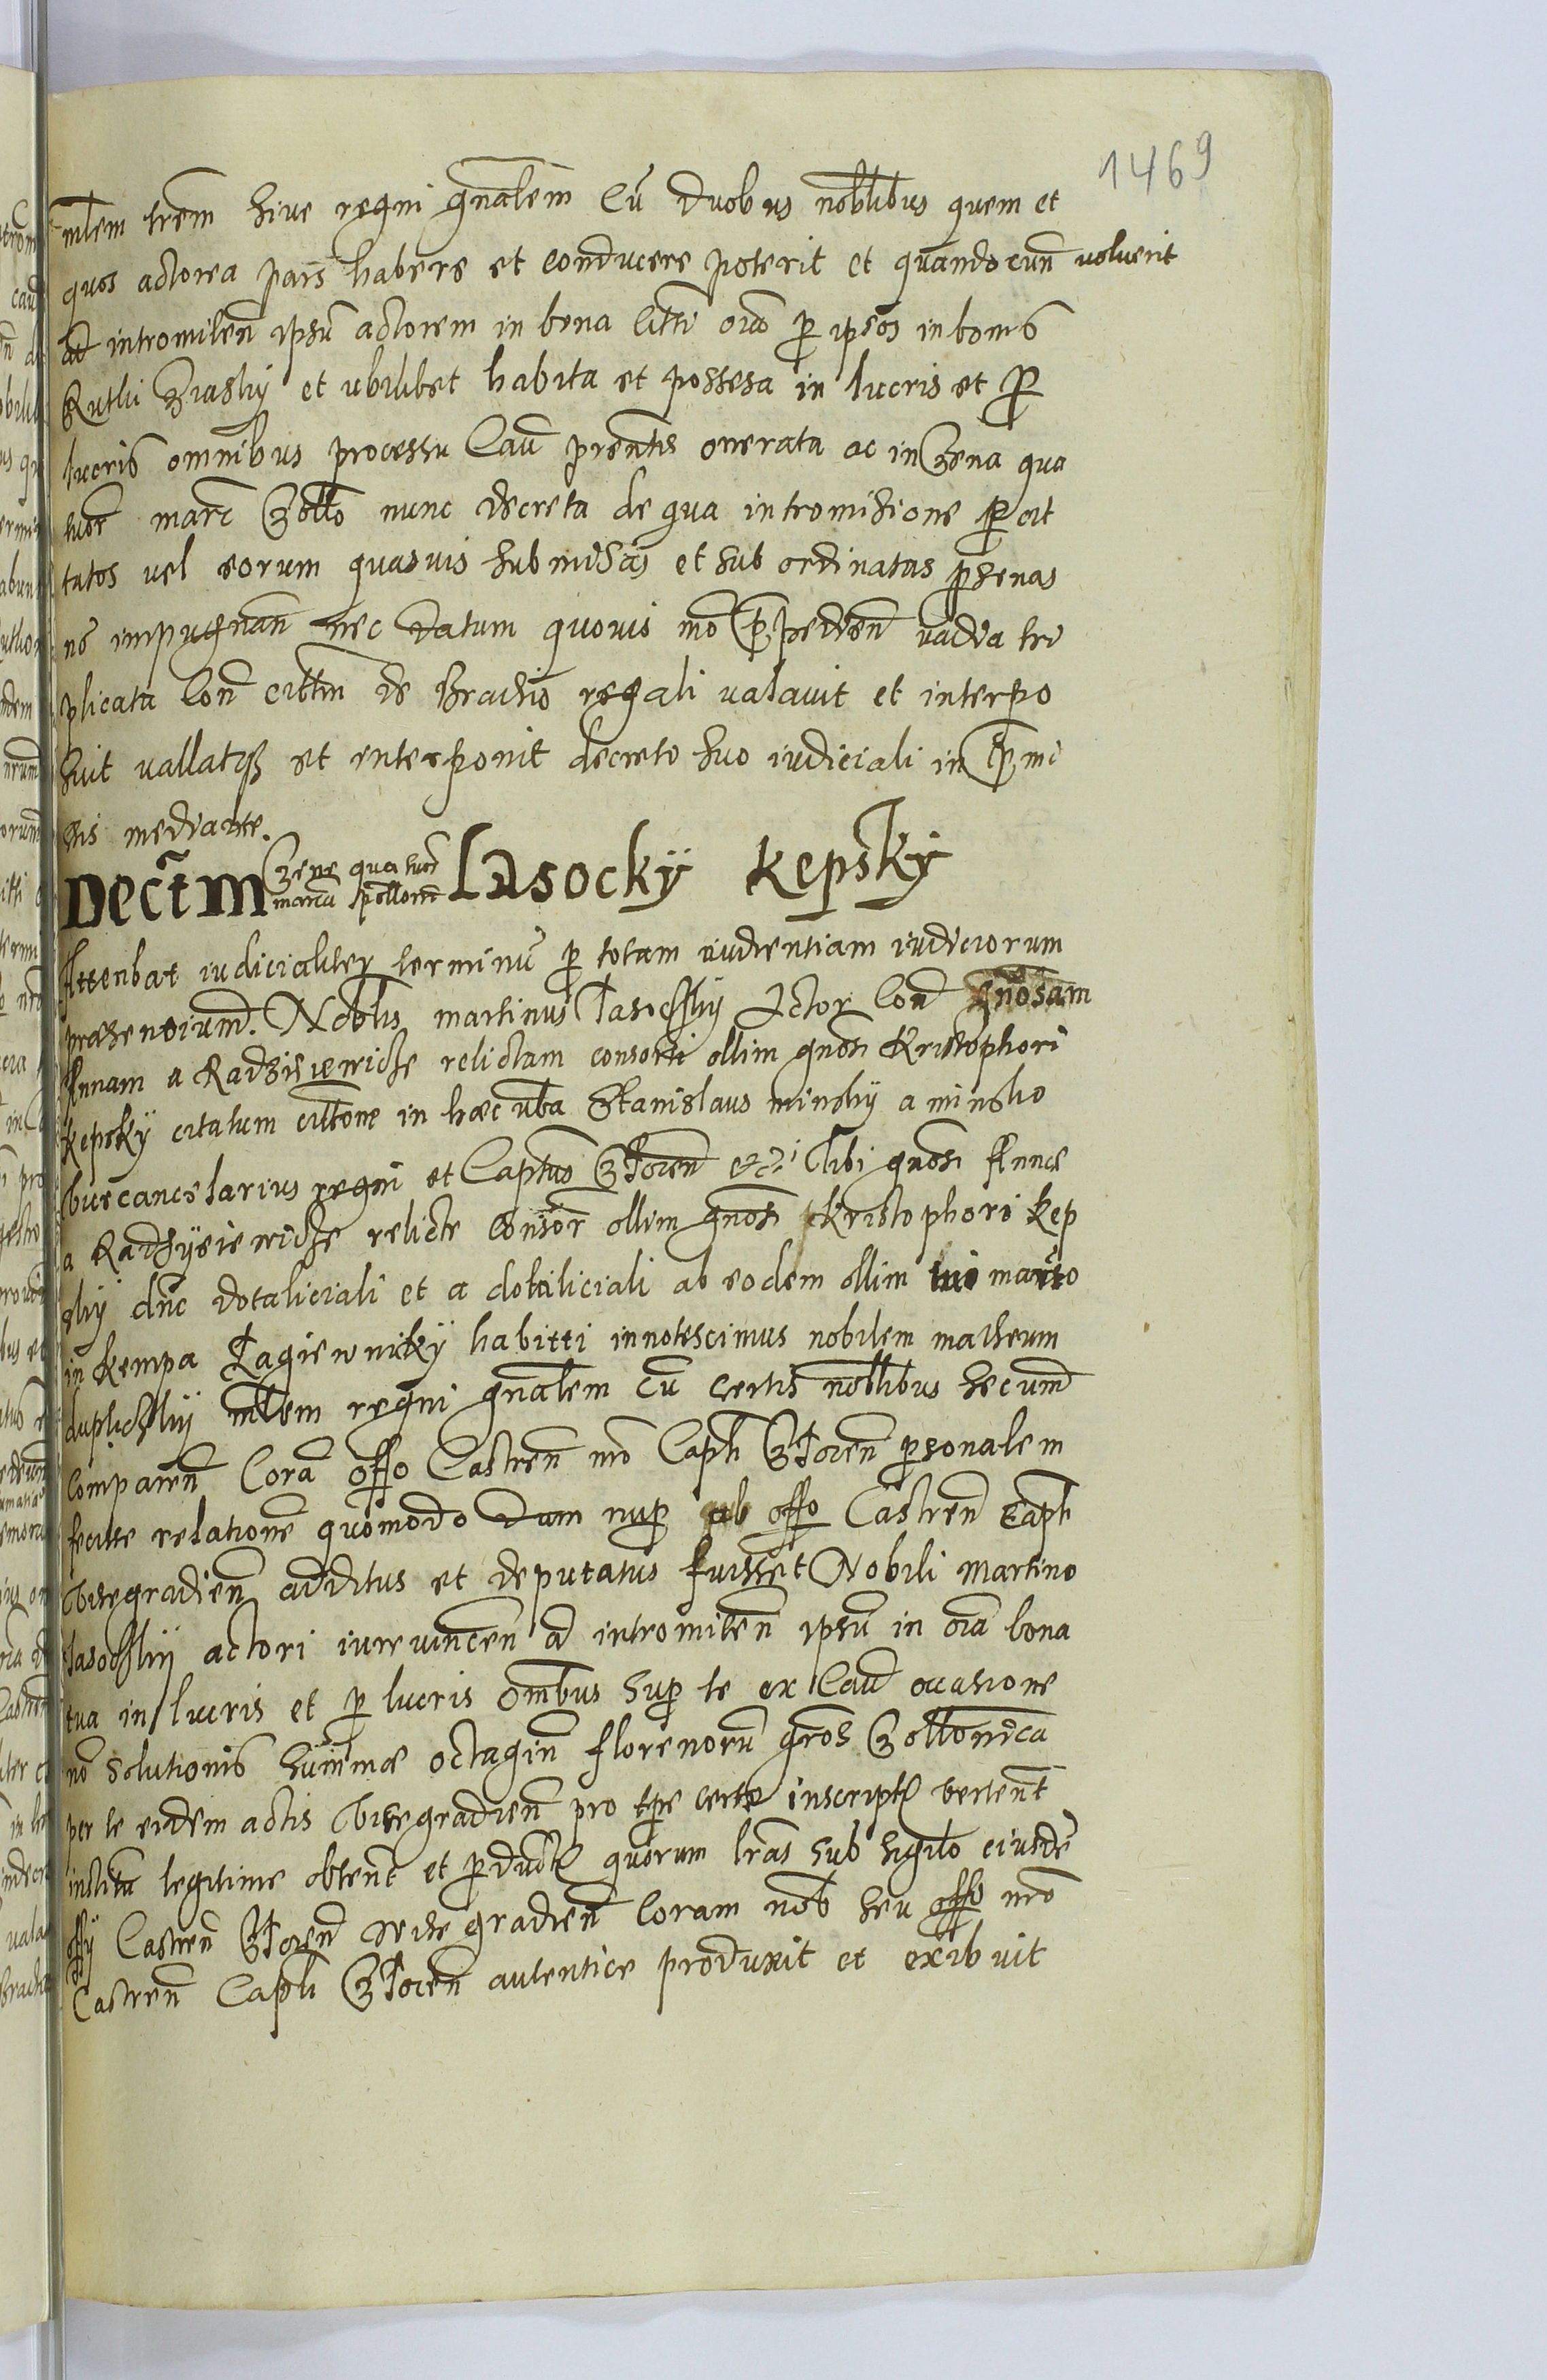 1469
mlem trem sive regni gnalem Cū duobus noblibus quem et
quos actorea pars habere et conducere poterit et quandocun voluerit
ad intromiten ipsū actorem in bona citti oīa p ipsos in bonis
Rutki Brasky et ubilibet habita et possesa in lucris et p
lucris omnibus processu Cau prentis onerata ac in pena qua
tuor marc pollo nunc decreta de qua intromisione p cit
tatos vel eorum quasvis submisas et sub ordinatas psonas
ne impugnan nec datum quovis mō ppedien vadia tri
plicata Con cittm de Brachio regali valavit et interpo
suit vallatq et interponit decreto suo iudiciali in pmi
sis mediante.
Dectm pene quatuor marca pollonic Lasocky Kepsky
Attenbat iudicialiter terminū p totam audientiam iudiciorum
præsentium. Noblis martinus Lasocky Actor Con gnosam
Annam a Radzieiewicze relictam consorti ollim gnosi Kristophori
Kepsky citatum cittone in hæc vba Stanislaus minsky a minsko
vicecancelarius regni et Captus Gstocen etc. Tibi gnosi Annæ
a Radzyeiewicze relicte Consor ollim gnosi Kristophori Kep
sky dnc dotaliciali et a dotaliciali ab eodem ollim tuo marito
in Kempa Lagiewniky habitti innotescimus nobilem matheum
duplicky mlem regni gnalem cū certis nobllibus secum
Comparen Corā offo Castren nro Capti Gstocen psonalem
fecisse relationē quomodo dum nup ab offo Castren Capti
Visegradien additus et deputatus fuisset Nobili Martino
Lasocky actori iurevincen ad intromiten ipsū in oīa bona
tua in lucris et p lucris omnbus sup te ex Cau occasione
nō solutionis summæ octagin florenorū gros pollonica
per te eidem actis Visegradien pro tpe certo inscriptæ vertent
institu legitime obtent et pducte quorum lras sub sigilo eiusdē
offy Castren Gstocen visegradien Coram nob seu offo nro
Castren Capti Gstocen autentice produxit et exibuit